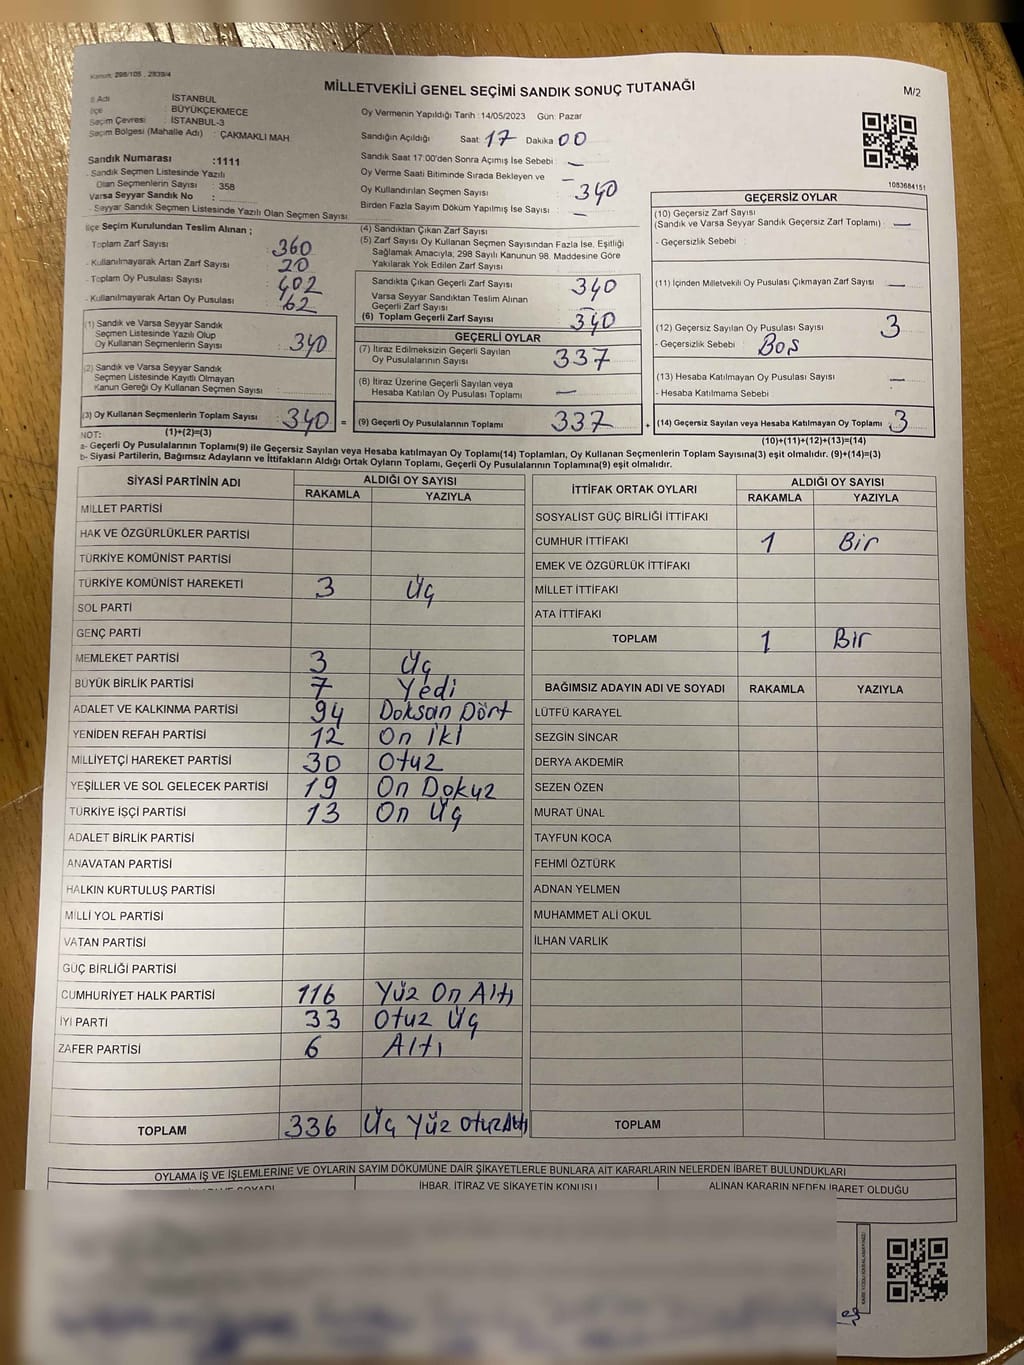 Kanun: 298/105 , 2839/4
MİLLETVEKİLİ GENEL SEÇİMİ SANDIK SONUÇ TUTANAĞI
M/2
İl Adı : İSTANBUL
İlçe : BÜYÜKÇEKMECE
Seçim Çevresi : İSTANBUL-3
Seçim Bölgesi (Mahalle Adı) : ÇAKMAKLI MAH
Sandık Numarası :1111
- Sandık Seçmen Listesinde Yazılı
Olan Seçmenlerin Sayısı : 358
Varsa Seyyar Sandık No :
- Seyyar Sandık Seçmen Listesinde Yazılı Olan Seçmen Sayısı
Oy Vermenin Yapıldığı Tarih :14/05/2023 Gün: Pazar
Sandığın Açıldığı Saat: 17 Dakika 00
Sandık Saat 17:00'den Sonra Açımış İse Sebebi : –
Oy Verme Saati Bitiminde Sırada Bekleyen ve –
Oy Kullandırılan Seçmen Sayısı : 340
Birden Fazla Sayım Döküm Yapılmış İse Sayısı : –
1083684151
İlçe Seçim Kurulundan Teslim Alınan ;
- Toplam Zarf Sayısı : 360
- Kullanılmayarak Artan Zarf Sayısı : 20
- Toplam Oy Pusulası Sayısı : 402
- Kullanılmayarak Artan Oy Pusulası : 62
(1) Sandık ve Varsa Seyyar Sandık
Seçmen Listesinde Yazılı Olup
Oy Kullanan Seçmenlerin Sayısı : 340
(2) Sandık ve Varsa Seyyar Sandık
Seçmen Listesinde Kayıtlı Olmayan
Kanun Gereği Oy Kullanan Seçmen Sayısı :
(3) Oy Kullanan Seçmenlerin Toplam Sayısı : 340 =
(1)+(2)=(3)
(4) Sandıktan Çıkan Zarf Sayısı
(5) Zarf Sayısı Oy Kullanan Seçmen Sayısından Fazla İse, Eşitliği
Sağlamak Amacıyla, 298 Sayılı Kanunun 98. Maddesine Göre
Yakılarak Yok Edilen Zarf Sayısı
Sandıkta Çıkan Geçerli Zarf Sayısı : 340
Varsa Seyyar Sandıktan Teslim Alınan
Geçerli Zarf Sayısı : –
(6) Toplam Geçerli Zarf Sayısı : 340
GEÇERLİ OYLAR
(7) İtiraz Edilmeksizin Geçerli Sayılan
Oy Pusulalarının Sayısı : 337
(8) İtiraz Üzerine Geçerli Sayılan veya
Hesaba Katılan Oy Pusulası Toplamı : –
(9) Geçerli Oy Pusulalarının Toplamı : 337 +
GEÇERSİZ OYLAR
(10) Geçersiz Zarf Sayısı
(Sandık ve Varsa Seyyar Sandık Geçersiz Zarf Toplamı) : –
- Geçersizlik Sebebi :
(11) İçinden Milletvekili Oy Pusulası Çıkmayan Zarf Sayısı : –
(12) Geçersiz Sayılan Oy Pusulası Sayısı : 3
- Geçersizlik Sebebi : Boş
(13) Hesaba Katılmayan Oy Pusulası Sayısı : –
- Hesaba Katılmama Sebebi :
(14) Geçersiz Sayılan veya Hesaba Katılmayan Oy Toplamı : 3
(10)+(11)+(12)+(13)=(14)
NOT:
a- Geçerli Oy Pusulalarının Toplamı(9) ile Geçersiz Sayılan veya Hesaba katılmayan Oy Toplamı(14) Toplamları, Oy Kullanan Seçmenlerin Toplam Sayısına(3) eşit olmalıdır. (9)+(14)=(3)
b- Siyasi Partilerin, Bağımsız Adayların ve İttifakların Aldığı Ortak Oyların Toplamı, Geçerli Oy Pusulalarının Toplamına(9) eşit olmalıdır.
SİYASİ PARTİNİN ADI ALDIĞI OY SAYISI
RAKAMLA YAZIYLA
MİLLET PARTİSİ
HAK VE ÖZGÜRLÜKLER PARTİSİ
TÜRKİYE KOMÜNİST PARTİSİ
TÜRKİYE KOMÜNİST HAREKETİ 3 Üç
SOL PARTİ
GENÇ PARTİ
MEMLEKET PARTİSİ 3 Üç
BÜYÜK BİRLİK PARTİSİ 7 Yedi
ADALET VE KALKINMA PARTİSİ 94 Doksan Dört
YENİDEN REFAH PARTİSİ 12 On iki
MİLLİYETÇİ HAREKET PARTİSİ 30 Otuz
YEŞİLLER VE SOL GELECEK PARTİSİ 19 On Dokuz
TÜRKİYE İŞÇİ PARTİSİ 13 On Üç
ADALET BİRLİK PARTİSİ
ANAVATAN PARTİSİ
HALKIN KURTULUŞ PARTİSİ
MİLLİ YOL PARTİSİ
VATAN PARTİSİ
GÜÇ BİRLİĞİ PARTİSİ
CUMHURİYET HALK PARTİSİ 116 Yüz On Altı
İYİ PARTİ 33 Otuz Üç
ZAFER PARTİSİ 6 Altı
TOPLAM 336 Üç Yüz Otuz Altı
İTTİFAK ORTAK OYLARI ALDIĞI OY SAYISI
RAKAMLA YAZIYLA
SOSYALİST GÜÇ BİRLİĞİ İTTİFAKI
CUMHUR İTTİFAKI 1 Bir
EMEK VE ÖZGÜRLÜK İTTİFAKI
MİLLET İTTİFAKI
ATA İTTİFAKI
TOPLAM 1 Bir
BAĞIMSIZ ADAYIN ADI VE SOYADI RAKAMLA YAZIYLA
LÜTFÜ KARAYEL
SEZGİN SİNCAR
DERYA AKDEMİR
SEZEN ÖZEN
MURAT ÜNAL
TAYFUN KOCA
FEHMİ ÖZTÜRK
ADNAN YELMEN
MUHAMMET ALİ OKUL
İLHAN VARLIK
TOPLAM
OYLAMA İŞ VE İŞLEMLERİNE VE OYLARIN SAYIM DÖKÜMÜNE DAİR ŞİKAYETLERLE BUNLARA AİT KARARLARIN NELERDEN İBARET BULUNDUKLARI
İHBAR, İTİRAZ VE ŞİKAYETİN KONUSU ALINAN KARARIN NEDEN İBARET OLDUĞU